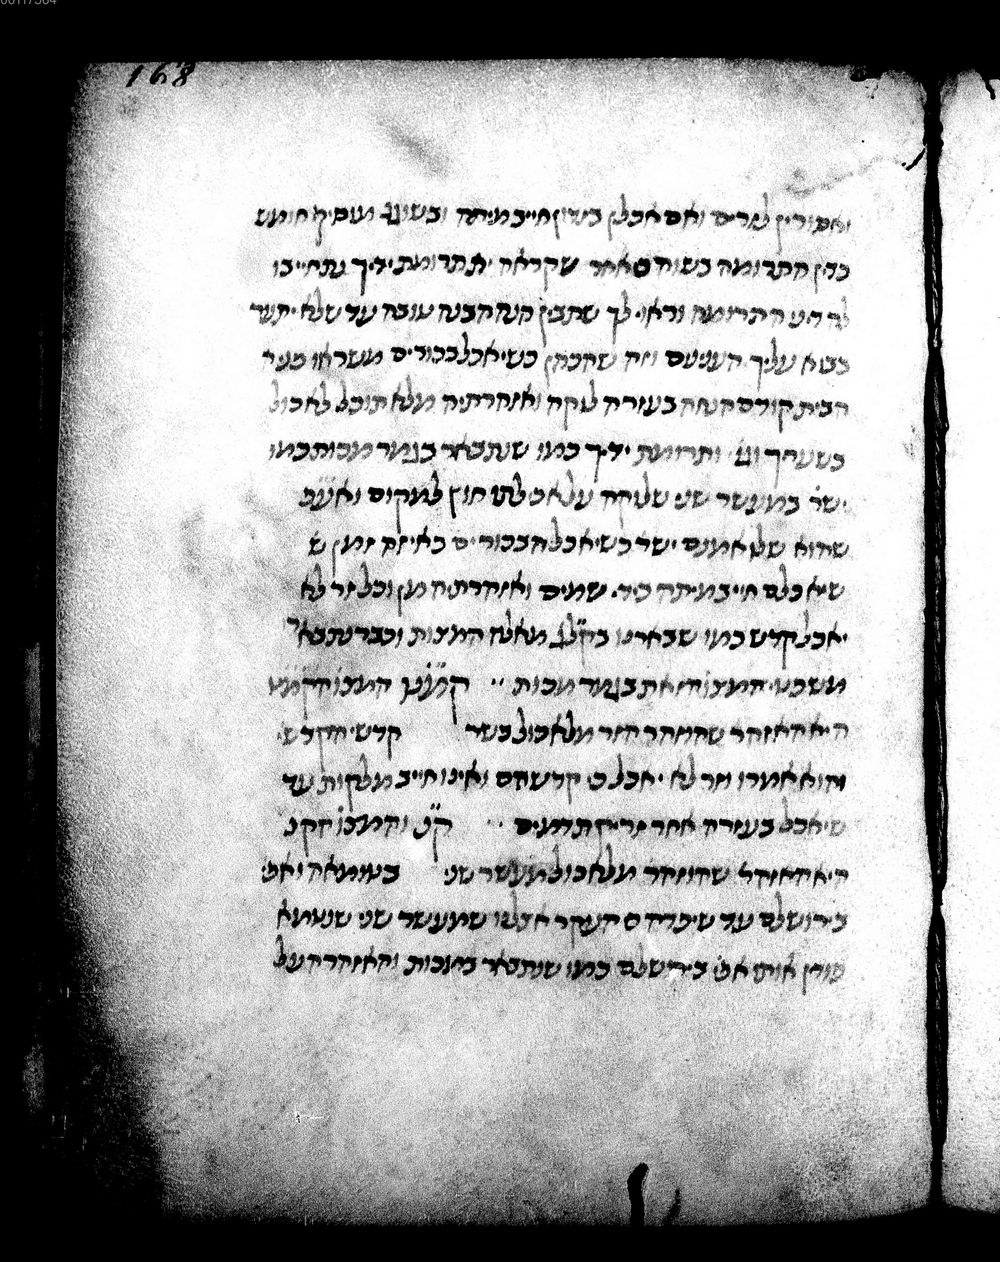 168
ואסורין לזרים ואם אכלן בזדון חייב מיתה ובשוגג מוסיף חומש
כדין התרומה בשוה אחר שקראה ית תרומת ידיך נתחייבו
לה דיני התרומה וראוי לך שתבין קנה הבנה טובה עד שלא יתער
בבוא עליך הענינים וזה שהכהן כשיאכל בכורים משראו פני
הבית קודם הנחה בעזרה לוקה ואזהרתיה מלא תוכל לאכול
בשעריך וגו' ותרומת ידיך כמו שנתבאר בגמר מכות כמו
ישר במעשר שני שלוקה עלאכלתו חוץ למקום ואעפ
שהוא של אמנם ישר כשיאכל הבכורים באיזה זמן ש
שיאכלם חייב מיתה בידי שמים ואזהרתיה מן וכל זר לא
יאכל קדש כמו שבארנו בקלג מאלה המצות וכבר נתבא'
משפטי המצוה הזאת בגמר מכות קמט המצוה הקמט
היא האזהר שהוזהר הזר מלאכול בשר קדשי הקדשי
והוא אמרו וזר לא יאכל כי קדש הם ואינו חייב מלקות עד
שיאכל בעזרה אחר זריקת דמים קנ והמצוה הקנ
היא האזהר שהוזהר מלאכול מעשר שני בטומאה ואפי
בירושלם עד שיפדה ס העקר אצלנו שמעשר שני שנטמא
פודין אותו אפי בירושלם כמו שנתבאר במכות והאזהרה על